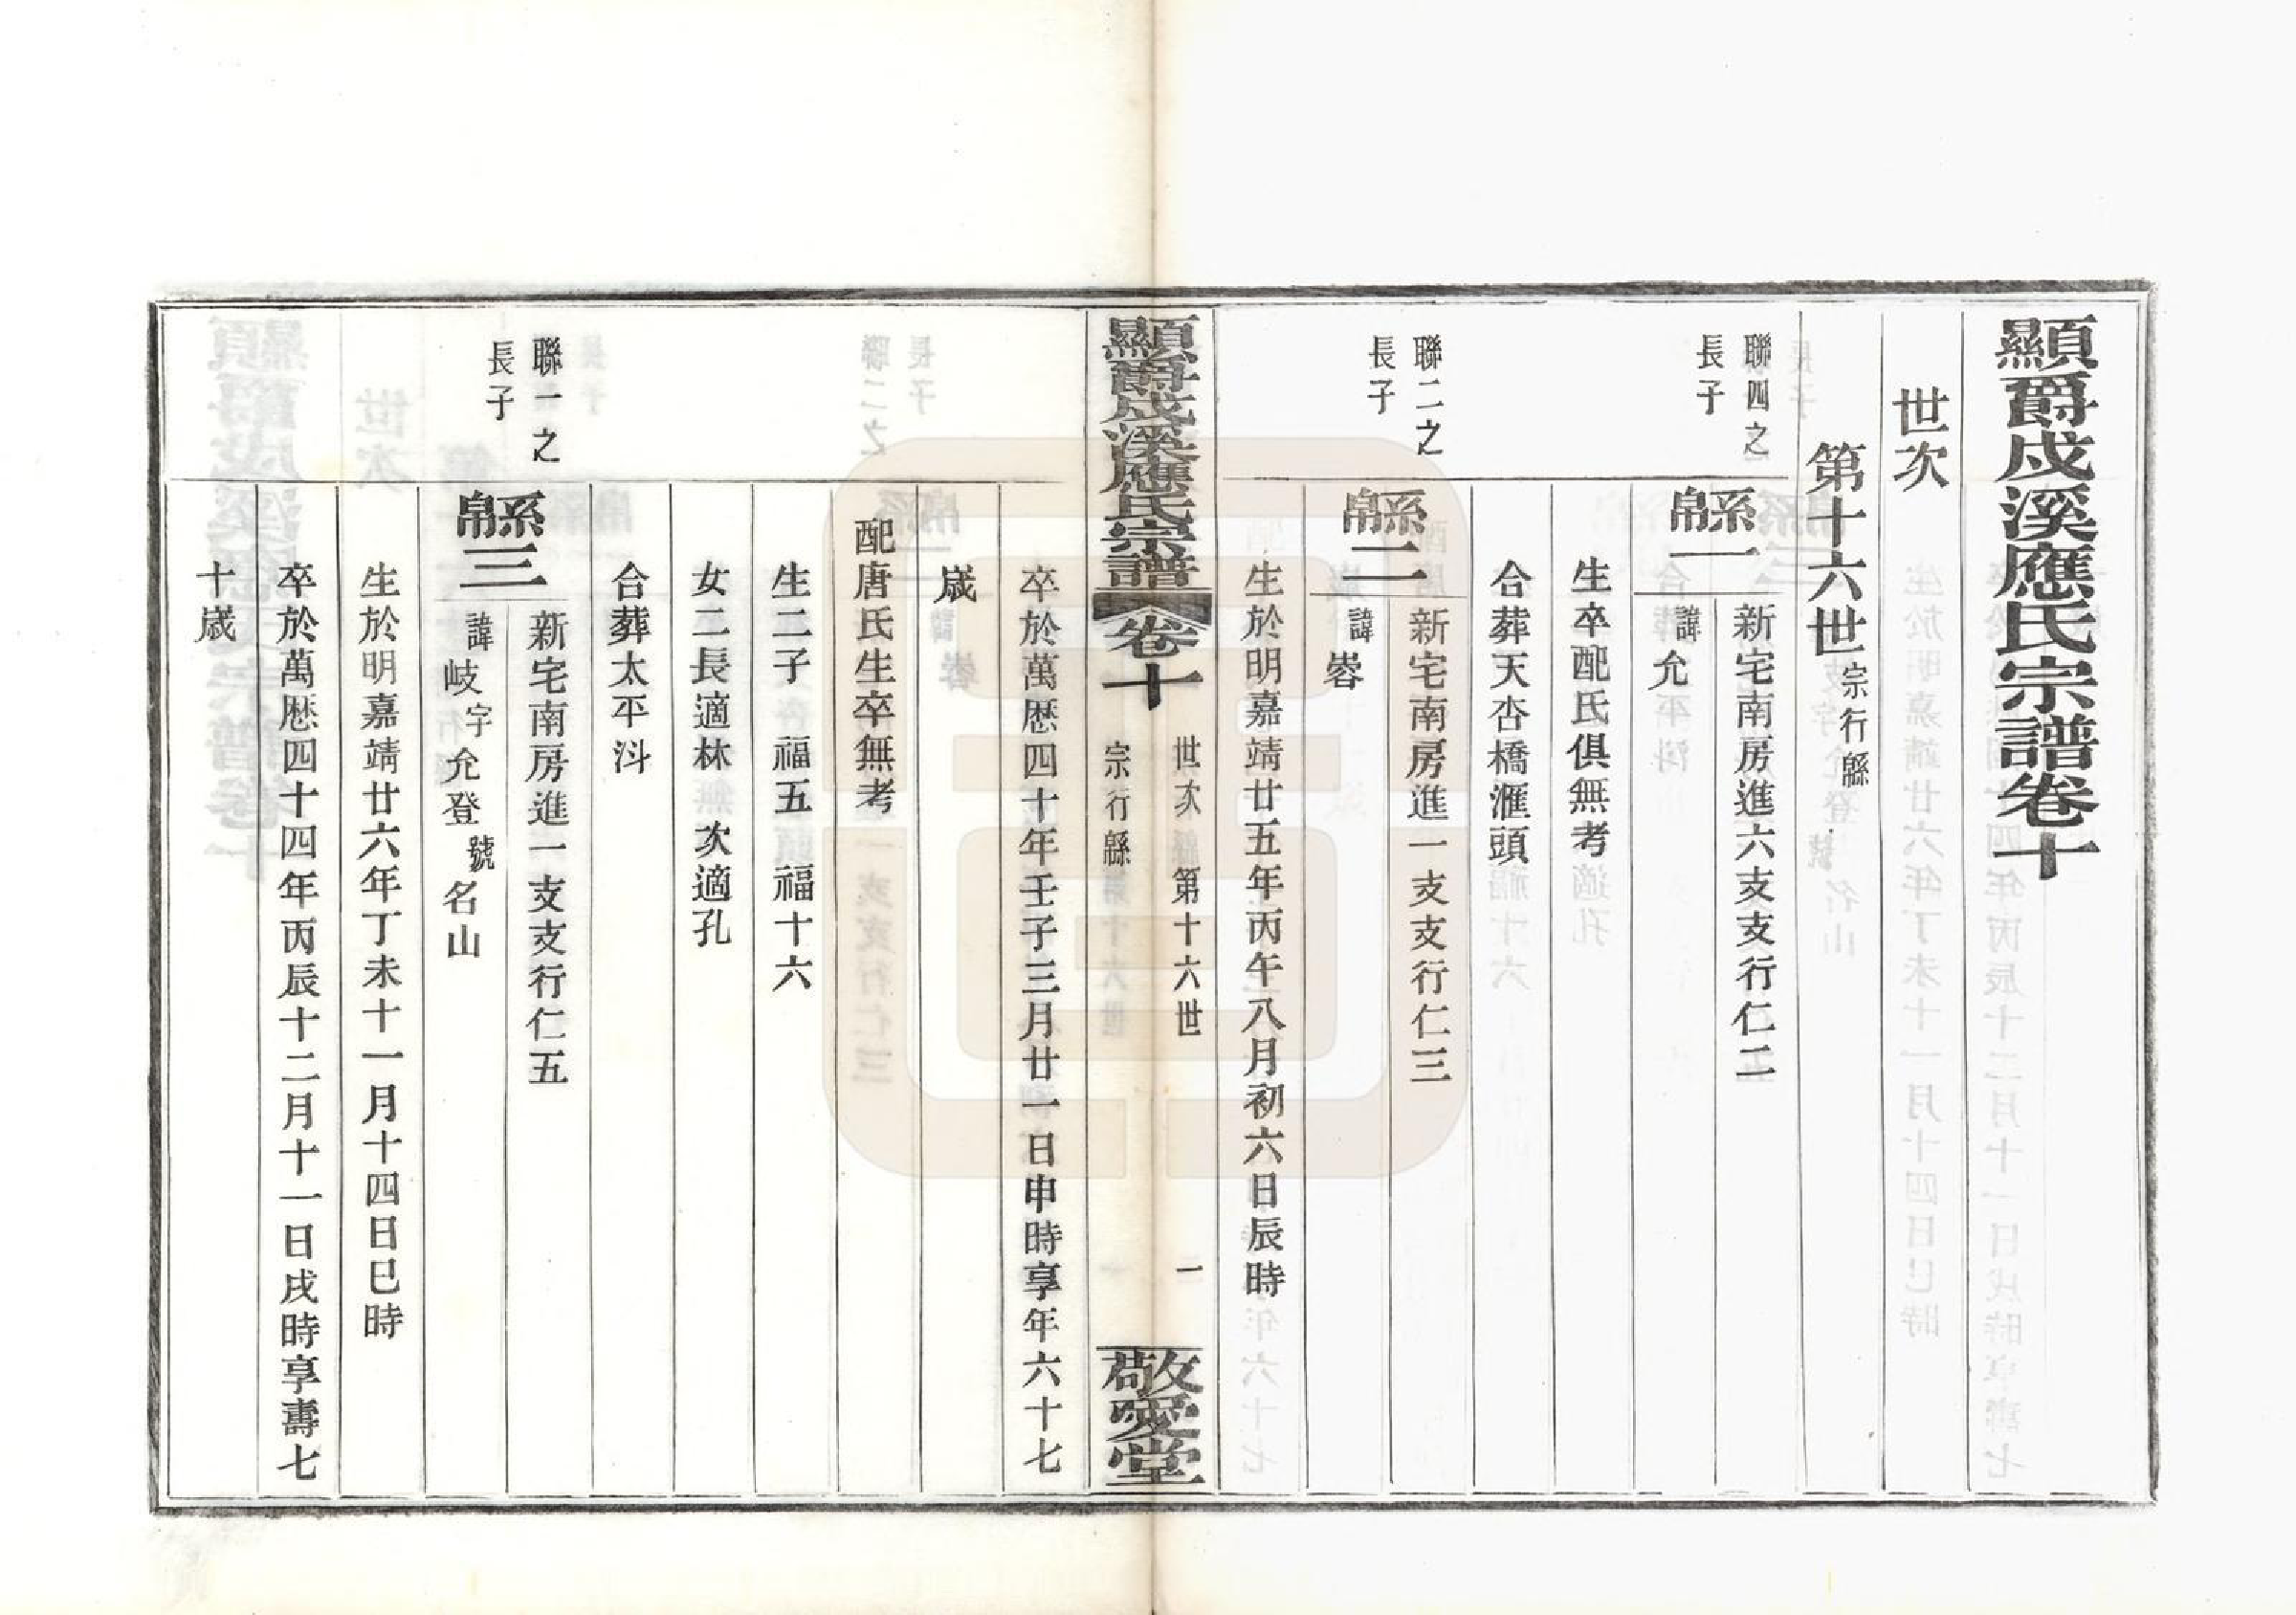 顯爵戍溪應氏宗譜卷十
世次
第十六世宗行緜
聯四之
長子
緜一
新宅南房進六支支行仁二
諱允
生卒配氏俱無考
合葬天杏橋滙頭
聯二之
長子
緜二
新宅南房進一支支行仁三
諱峉
生於明嘉靖廿五年丙午八月初六日辰時
顯爵戍溪應氏宗譜卷十
世次 第十六世 一
宗行緜
敬愛堂
卒於萬歷四十年壬子三月廿一日申時享年六十七
歲
配唐氏生卒無考
生二子 福五 福十六
女二長適林 次適孔
合葬太平㳆
聯一之
長子
緜三
新宅南房進一支支行仁五
諱岐字允登號名山
生於明嘉靖廿六年丁未十一月十四日巳時
卒於萬歷四十四年丙辰十二月十一日戌時享壽七
十歲